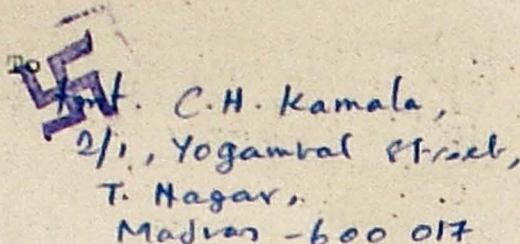 To
Smt. C.H. Kamala,
2/1, Yogambal Street,
T. Nagar,
Madras - 600 017